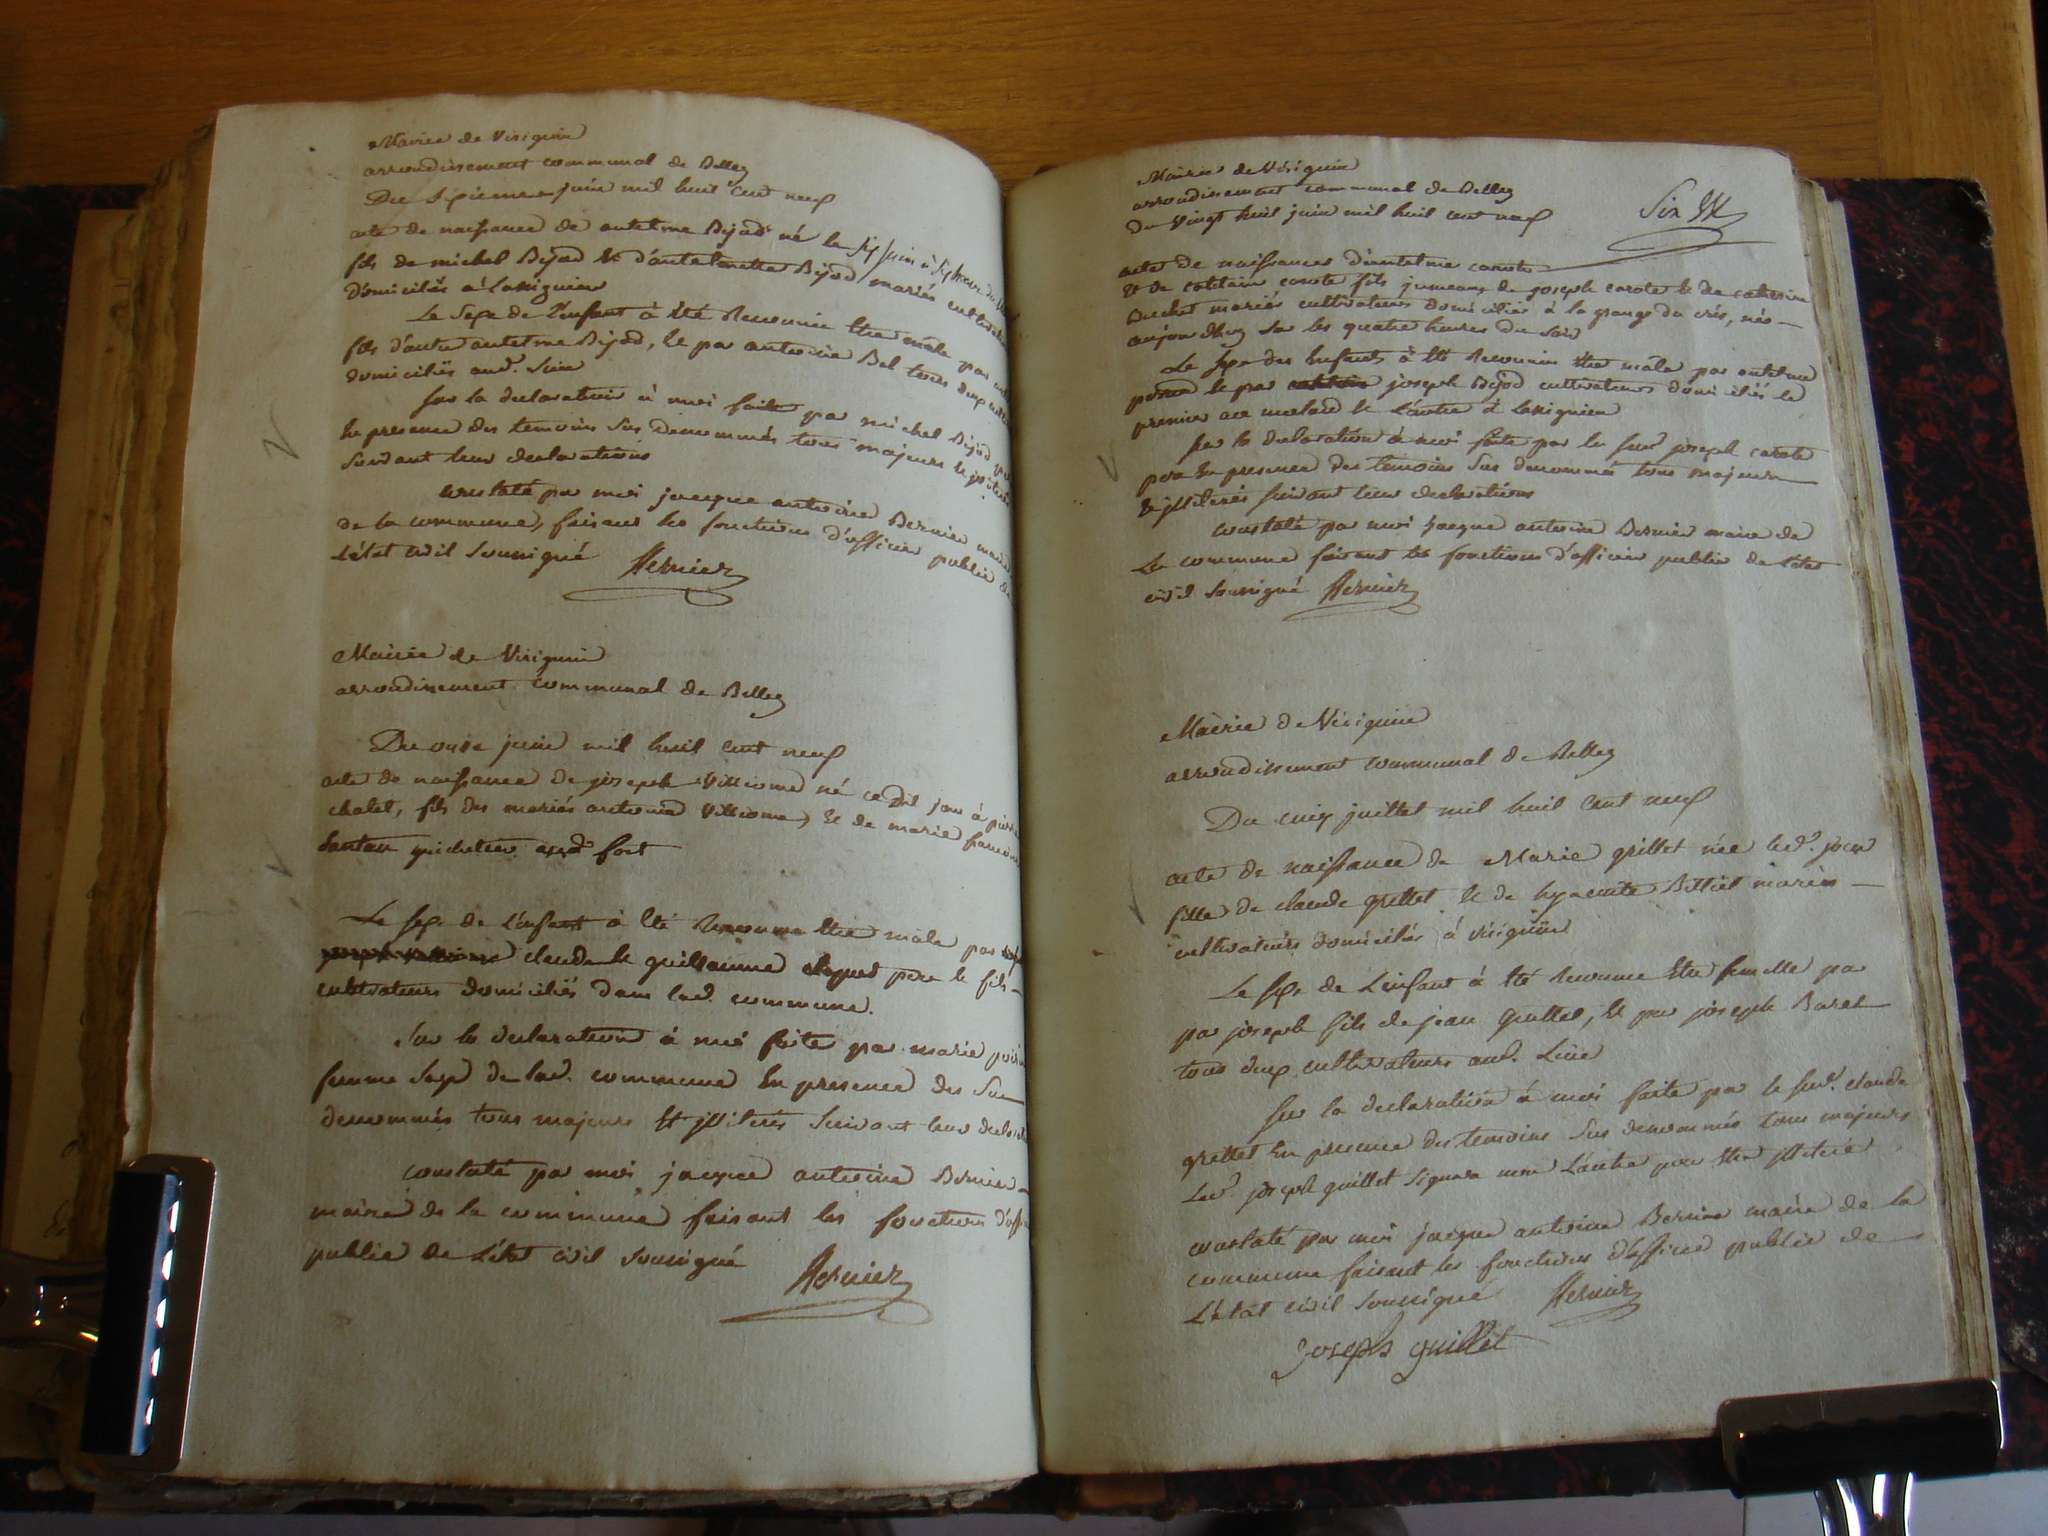 Mairie de Virignin
arrondissement communal de Belley
Du juin mil huit cent neuf
acte de naissance de antelme Bijod né le six juin à
fils de michel Bijod et d'antelmette Bijod mariés
domiciliés à Lassignieu
Le sexe de l'enfant à été reconnu être mâle par
fils d'autre antelme Bijod, et par antoine Bel tous deux
domiciliés aud. lieu
sur la declaration à moi faite par michel Bijod
en presence des temoins sus denommés tous majeurs
suivant leur declarations
constaté par moi jacque antoine Bernier maire
de la commune, faisant les fonctions d'officier public de
L'état civil soussigné Bernier
Mairie de Virignin
arrondissement communal de Belley
Du onze juin mil huit cent neuf
acte de naissance de joseph né ce dit jour à pierre
chatet, fils des mariés antoine et de marie
aud. fort
Le sexe de L'enfant à été reconnu être mâle par
claude et guillaume père et fils
cultivateurs domiciliés dans lad. commune.
Sur la declaration à moi faite par marie
femme sage de lad. commune en presence des sus
denommés tous majeurs et illiterés suivant leur
constaté par moi jacque antoine Bernier
maire de la commune faisant les fonctions
public de L'état civil soussigné
Bernier
Mairie de Virignin
arrondissement communal de Belley
du vingt huit juin mil huit cent neuf
Six
acte de naissances d'antelme carote
et de carote fils jumeaux de joseph carote et de catherine
mariés cultivateurs domiciliés à la grange du nés
aujourd'huy sur les quatre heures du soir
Le sexe des enfants à été reconnu être mâle par antelme
et par joseph Bijod cultivateurs domiciliés le
premier au et L'autre à Lassignieu
sur la declaration à moi faite par le sud. joseph carote
père en presence des temoins sus denommés tous majeurs
et illiterés suivant leur declarations
constaté par moi jacque antoine Bernier maire de
La commune faisant les fonctions d'officier public de L'état
civil soussigné Bernier
Mairie de Virignin
arrondissement communal de Belley
Du cinq juillet mil huit cent neuf
acte de naissance de Marie grillet née led. jour
fille de claude grillet et de hyacinte Billiet mariés
cultivateurs domiciliés à virignin
Le sexe de L'enfant à été reconnu être femelle par
par joseph fils de jean guillet, et par joseph
tous deux cultivateurs aud. Lieu
sur la declaration à moi faite par le sud. claude
grillet en presence des temoins sus denommés tous majeurs
Led. joseph guillet signera non L'autre pour être illiteré
constaté par moi jacque antoine Bernier maire de la
commune faisant les fonctions d'officier public de
L'état civil soussigné Bernier
joseph guillet